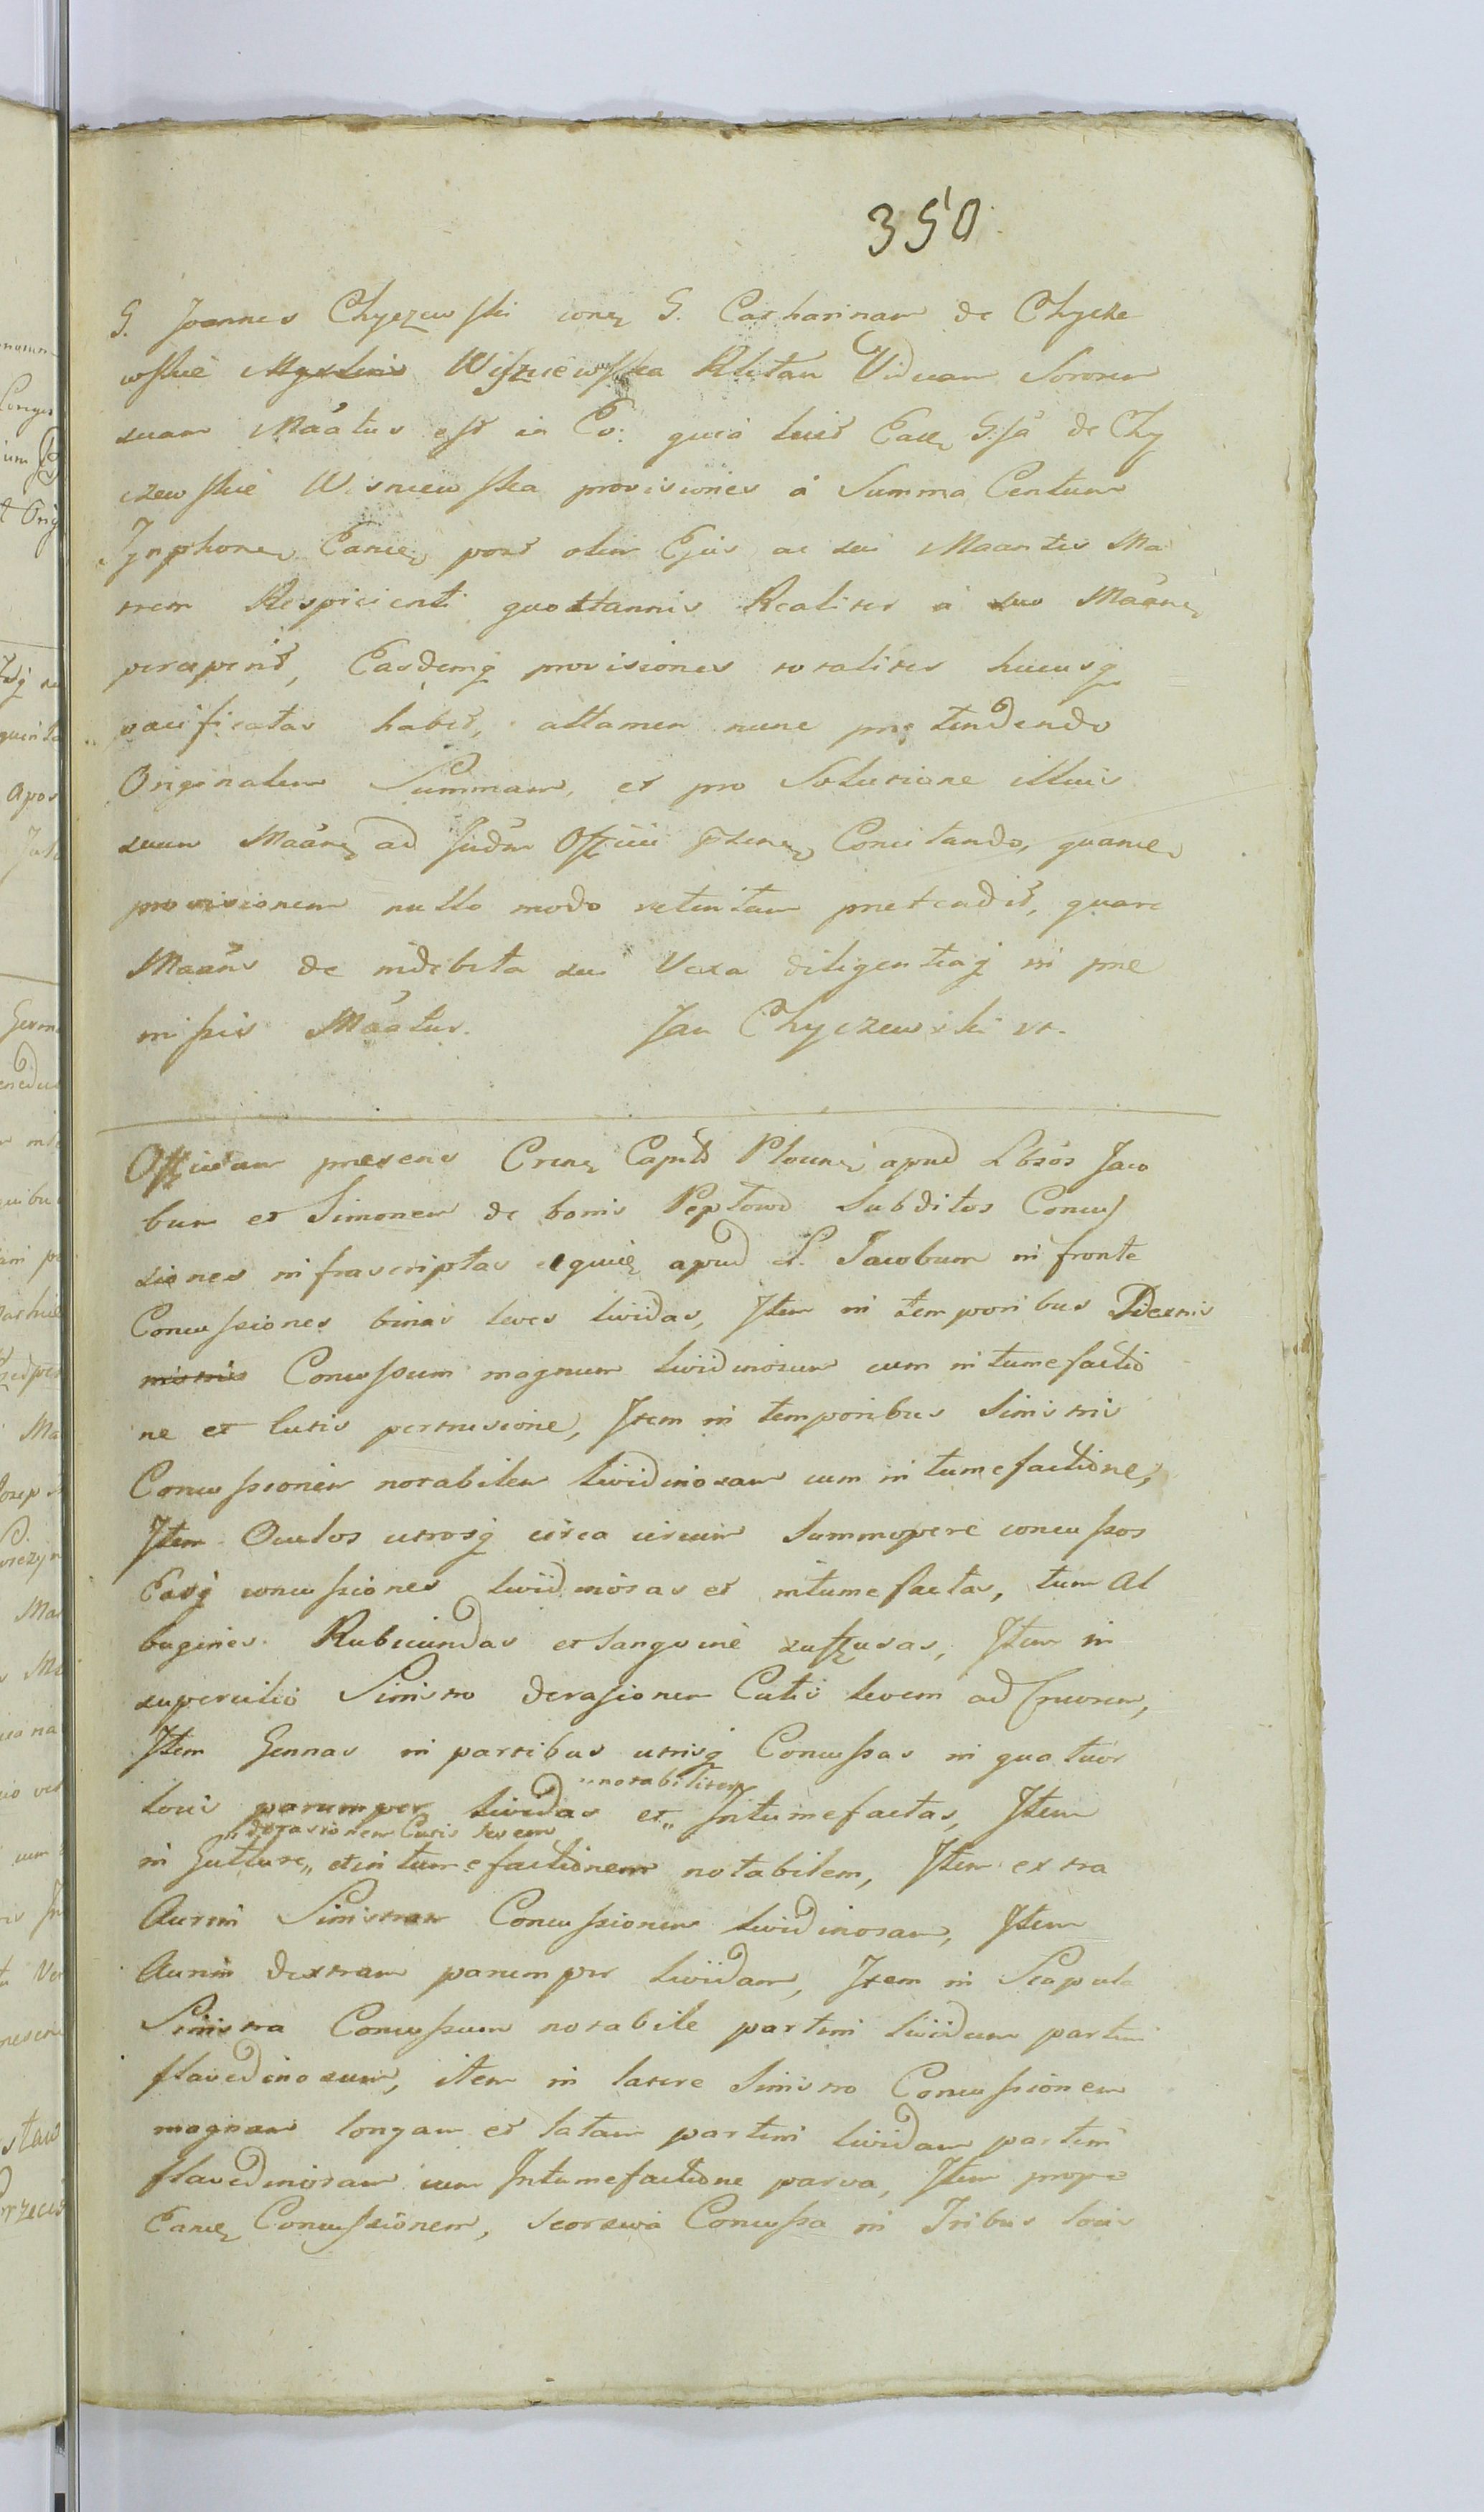 350.
G. Joannes Chyczewski conq G. Catharinam de Chycze
wskie Wiszniewska Rlitam Viduam Sororem
suam Maãtus est in Eo: quia licet Eadq G:sa de Chy
czewskie Wisniewska provisiones à Summa Centum
Tynphonq Eamq post olim Ejus ac sui Maantis Ma
trem Respicienti quottannis Realiter à suo Maãnq
perceperit, Easdemq provisiones totaliter hucusq
pacificatas habet, attamen nunc prętendendo
Originalem Summam, et pro Solutione illius
suum Maãnq ad Judm Officii Psenq Concitando, quamq
provisionem nullo modo retentam pretendit, quare
Maãns de indebita sui Vexa diligentiaq in pre
missis Maãtur. Jan Chyczewski vt.
Officium presens Crenq Capnłe Plocnq apud Lbsos Jaco
bum et Simonem de bonis Peptowo Subditos Concus
siones infrascriptas apud L. Jacobum in fronte
Concussiones binas leves lividas, Item in temporibus Dextris
Concussum magnum lividinosum cum intumefactio
ne et cutis pertrusione, Item in temporibus Sinistris
Concussionem notabilem lividinosam cum intumefactione,
Item Oculos utrosq circa circum Summopere concussos
Easq concussiones lividinosas et intumefactas, tum Al
bugines Rubicundas et sanguine suffusas, Item in
supercilio Sinistro derasionem Cutis levem ad Cruorem,
Item Gennas in partibus utrisq Concussas in quatuor
locis parumper lividas et „notabiliter„ Intumefactas, Item
in Gutture „derasionem Cutis levem„ et intumefactionem notabilem, Item extra
Aurim Sinistram Concussionem lividinosam, Item
Aurim dextram parumper lividam, Item in Scapula
Sinistra Concussum notabile partim lividum partim
flavedinosum, item in latere Sinistro Concussionem
magnam longam et latam partim lividam partim
flavedinosam cum Intumefactione parva, Item prope
Eamq Concussionem, seorsiva Concussa in Tribus locis